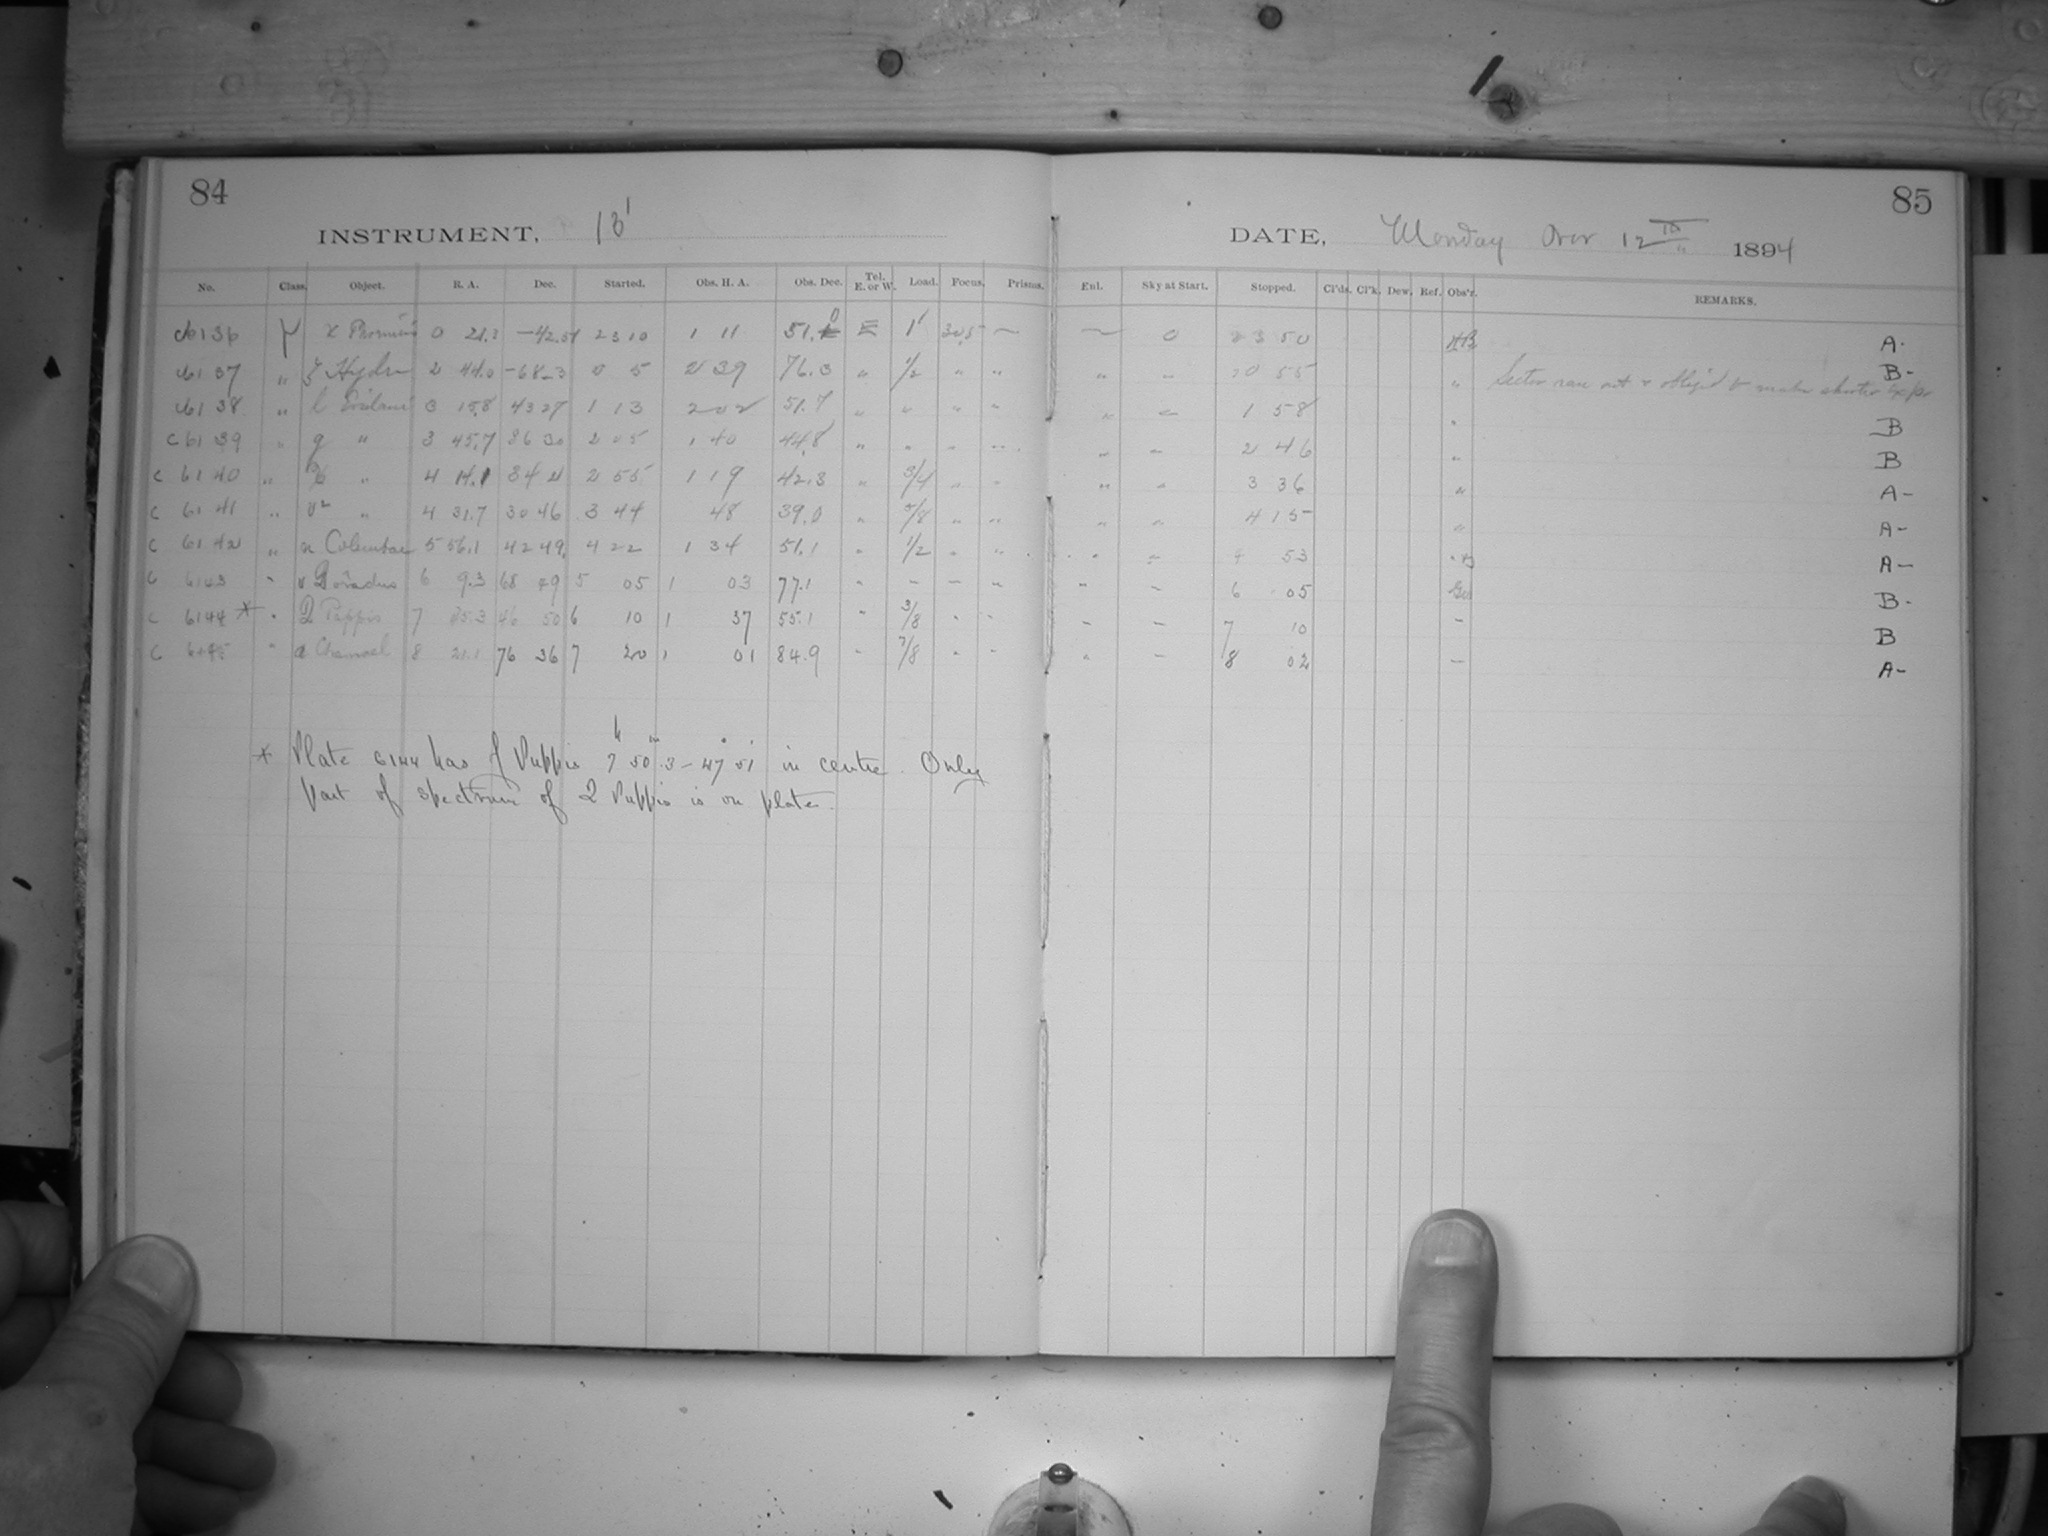 84
85
INSTRUMENT, 13'
DATE, Monday Nov 12th 1894
No. Class. Object. R. A. Dec. Started. Obs. H. A. Obs. Dec. Tel. E. or W. Load. Focus. Prisms. Enl. Sky at Start. Stopped. Cl'ds. Cl'k. Dew. Ref. Obs'r. REMARKS.
c6136 κ Phoenicis 0 21.3 -42.51 23 10 1 11 51.0 E 1' 30.5 — — 0 23 50 A-
c6137 " Hydri 2 44.0 -68-3 0 5 239 76.3 " 1/2 " " " " 0 55 " Sector ran out & oblig'd to make shorter Expr B-
c6138 " Eridani 3 15.8 43 27 1 13 202 51.7 " " " " " " 1 58 " B
c6139 " g " 3 45.7 36 30 2 05 1 40 44.8 " " " " " " 2 46 " B
c 6140 " " 4 14.1 34 2 2 55 1 19 42.3 " 3/4 " " " " 3 36 " A-
c 6141 " υ2 " 4 31.7 30 46 3 44 48 39.0 " 7/8 " " " " 4 15 " A-
c 6142 " Columbae 5 56.1 42 49 4 22 1 34 51.1 " 1/2 " " " " 4 53 A-
c 6143 " ν Doradus 6 9.3 68 49 5 05 1 03 77.1 " - - " " - 6 05 B-
c 6144 * " Q Puppis 7 46 50 6 10 1 37 55.1 " 3/8 " " - - 7 10 - B
c 6145 " α Chamael 8 21.1 76 36 7 20 1 01 84.9 " 7/8 " " " - 8 02 - A-
* Plate 6144 has J Puppis 7h 50m.3 - 47° 51' in centre. Only
part of spectrum of Q Puppis is on plate.